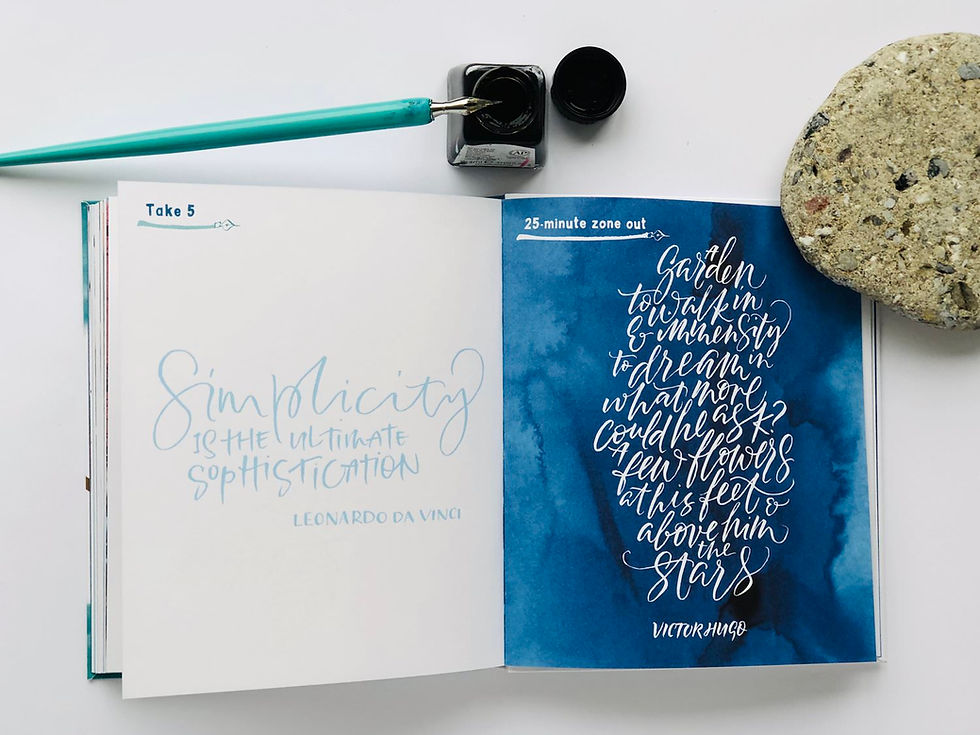 Take 5
Simplicity
IS THE ULTIMATE
SOPHISTICATION
LEONARDO DA VINCI
25-minute zone out
A
Garden
to walk in
& immensity
to dream in
what more
could he ask?
A few flowers
at his feet &
above him
the
stars
VICTOR HUGO